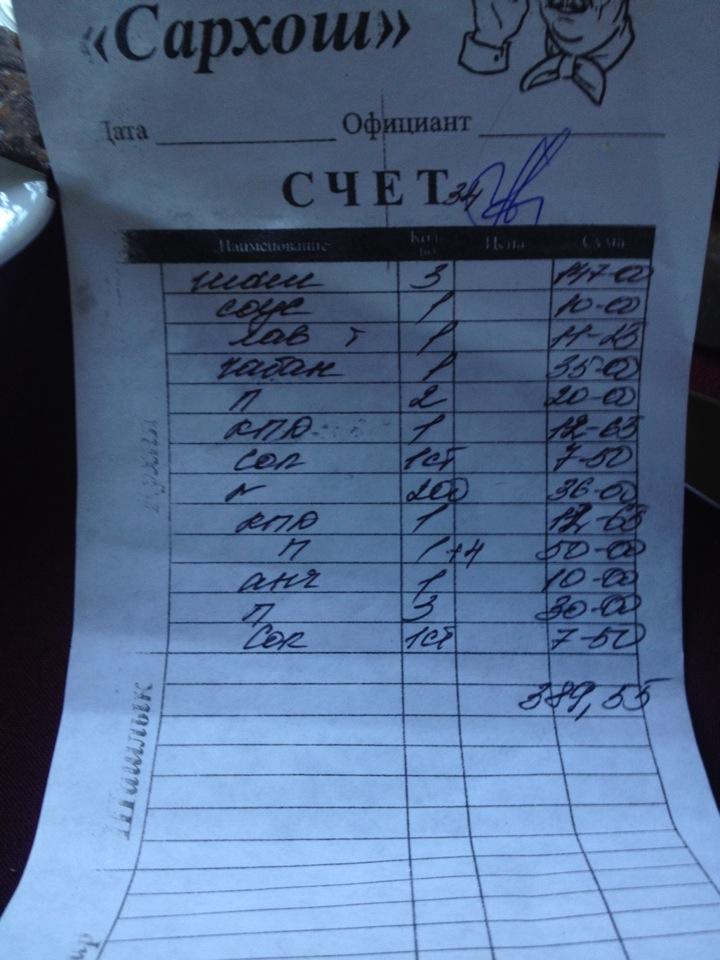 «Сархош»
Дата Официант
СЧЕТ 34
Наименование Кол-во Цена Сумма
шаш 3 147-00
соус 1 10-00
лав т 1 11-25
чабан 1 35-00
п 2 20-00
кпю 1 12-65
сок 1ст 7-50
200 36-00
кпю 1 12-65
п 1+4 50-00
анч 1 10-00
п 3 30-00
Сок 1ст 7-50
389,55
Шашлык